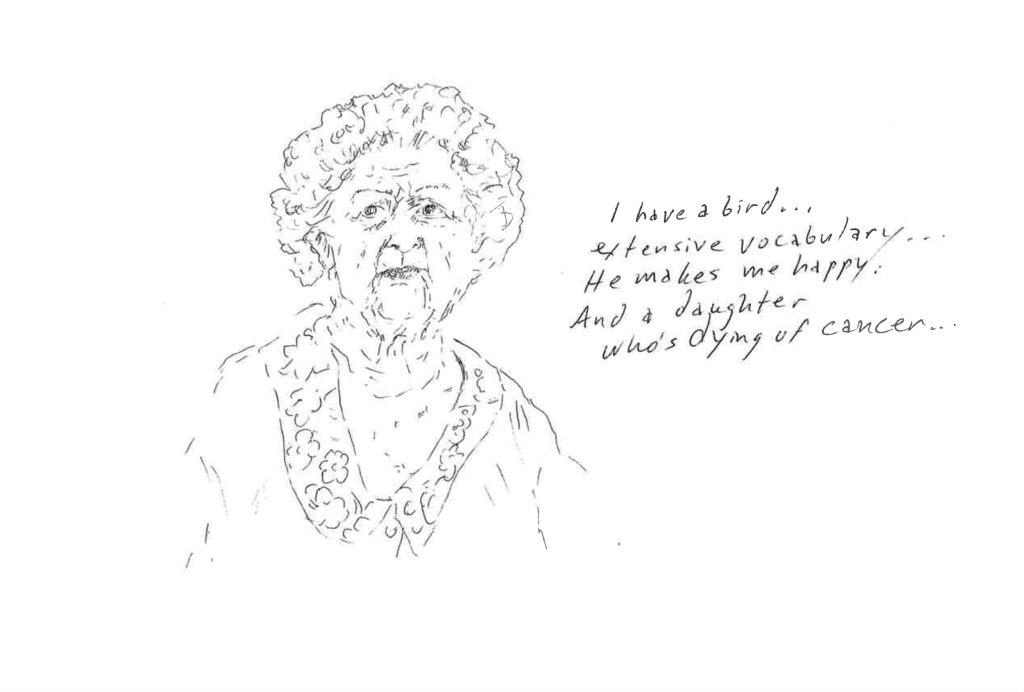 I have a bird...
extensive vocabulary...
He makes me happy.
And a daughter
who's dying of cancer...